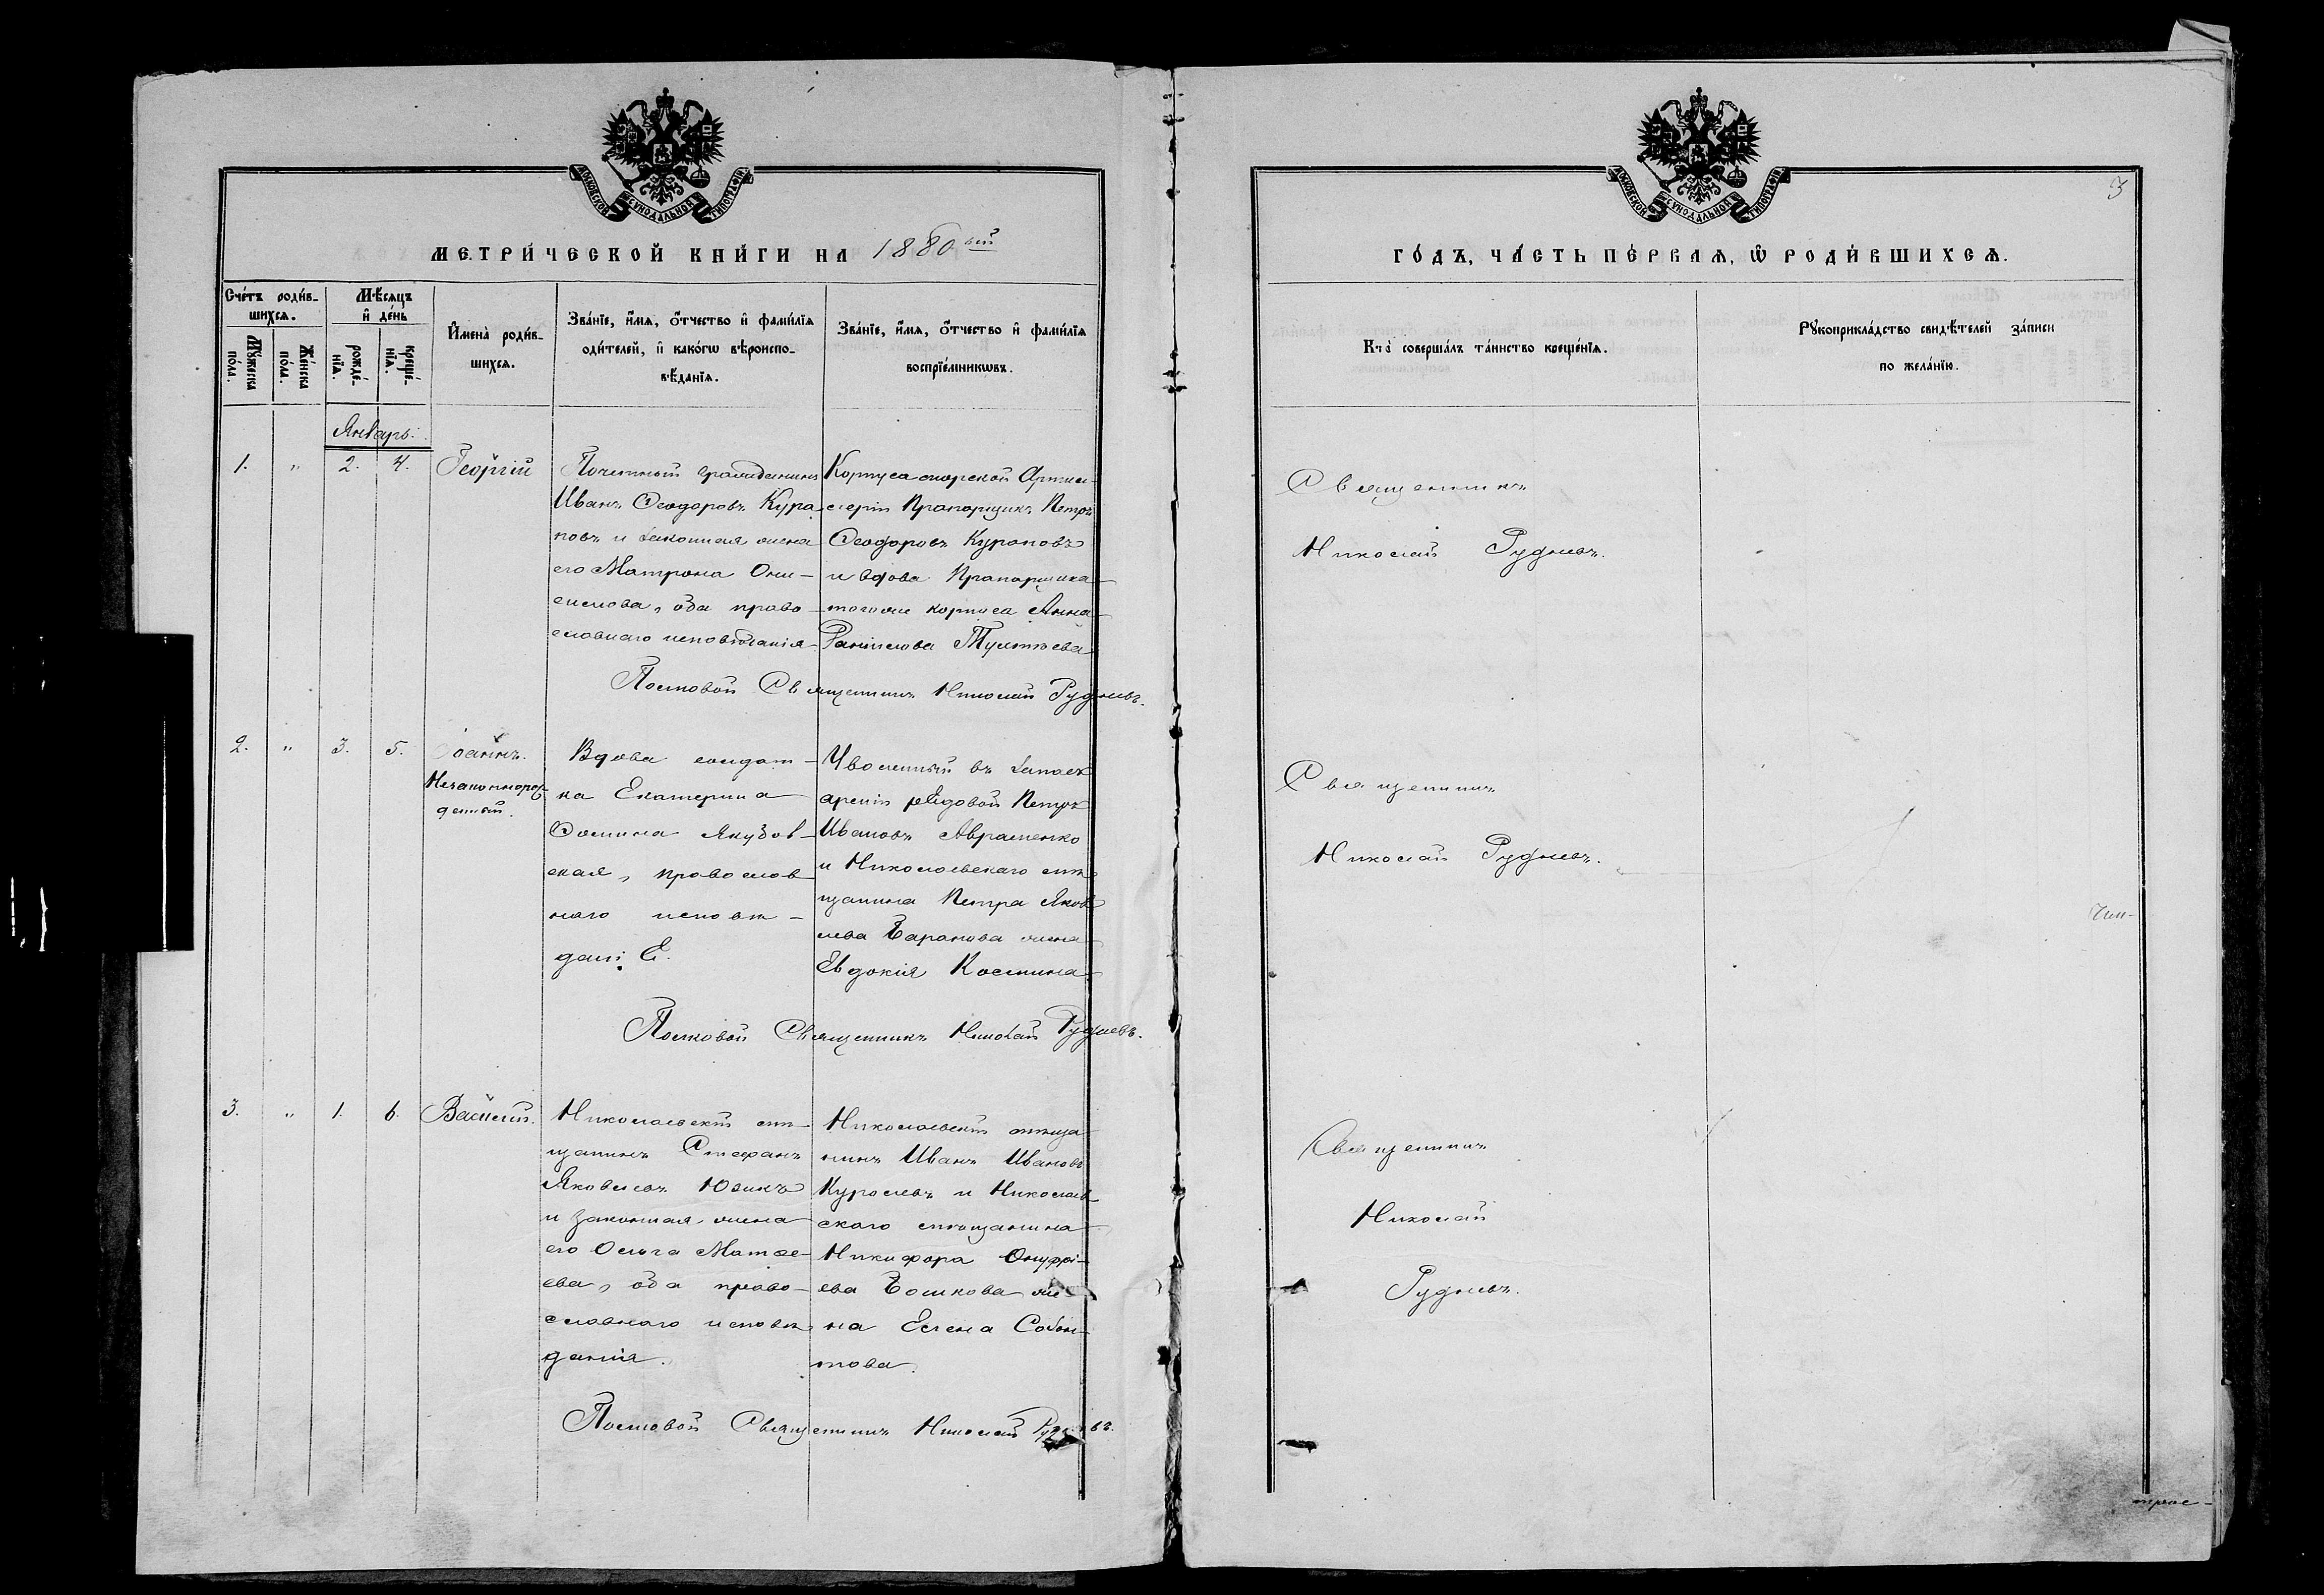 МОСКОВСКОЙ СѴНОДАЛЬНОЙ ТИПОГРАФІИ
МЕТРИ́ЧЕСКОЙ КНИ́ГИ НА 1880 ый
Сче́тъ роди́вшихсѧ.
Му́жеска по́ла.
Же́нска по́ла.
Мѣ́сѧцъ и҆ де́нь
рожде́нїѧ.
креще́нїѧ.
И҆мена̀ роди́вшихсѧ.
Зва́нїе, и҆́мѧ, ѻ҆́тчество и҆ фами́лїѧ
роди́телей, и҆ како́гѡ вѣ́роиспо-
вѣ́данїѧ.
Зва́нїе, и҆́мѧ, ѻ҆́тчество и҆ фами́лїѧ
воспрїе́мникѡвъ.
Январь.
1. " 2. 4. Георгій
Почетный гражданинъ
Иванъ Ѳеодоровъ Кура-
повъ и законная жена
его Матрона Они-
симова, оба право-
славнаго исповѣданія
Корпуса морской Артил-
леріи Прапорщикъ Петръ
Ѳеодоровъ Кураповъ
и вдова Прапорщика
тогоже корпуса Анна
Полковой Священникъ Николай Рудневъ.
2. " 3. 5. Іоаннъ.
Незаконнорож-
денный.
Вдова солдат-
ка Екатерина
Ѳомина Якубов-
ская, православ-
наго исповѣ-
данія.
Уволенный въ запасъ
арміи рядовой Петръ
Ивановъ Авраменко
и Николаевскаго мѣ-
щанина Петра Яков-
лева Баранова жена
Евдокія Косьмина
Полковой Священникъ Николай Рудневъ.
3. " 1. 6. Василій.
Николаевскій мѣ-
щанинъ Стефанъ
Яковлевъ Юзикъ
и законная жена
его Ольга Матѳе-
ева, оба право-
славнаго исповѣ-
данія.
Николаевскій мѣща-
нинъ Иванъ Ивановъ
Куролевъ и Николаев-
скаго мѣщанина
Никифора Онуфрі-
ева Бошкова же-
на Елена
Полковой Священникъ Николай Рудневъ.
МОСКОВСКОЙ СѴНОДАЛЬНОЙ ТИПОГРАФІИ
3
ГО́ДЪ, ЧА́СТЬ ПЕ́РВАѦ, Ѡ҆ РОДИ́ВШИХСѦ.
Кто̀ соверша́лъ та́инство креще́нїѧ.
Рꙋкоприкла́дство свидѣ́телей за́писи
по жела́нїю.
Священникъ
Николай Рудневъ.
Священникъ
Николай Рудневъ.
Священникъ
Николай
Рудневъ.